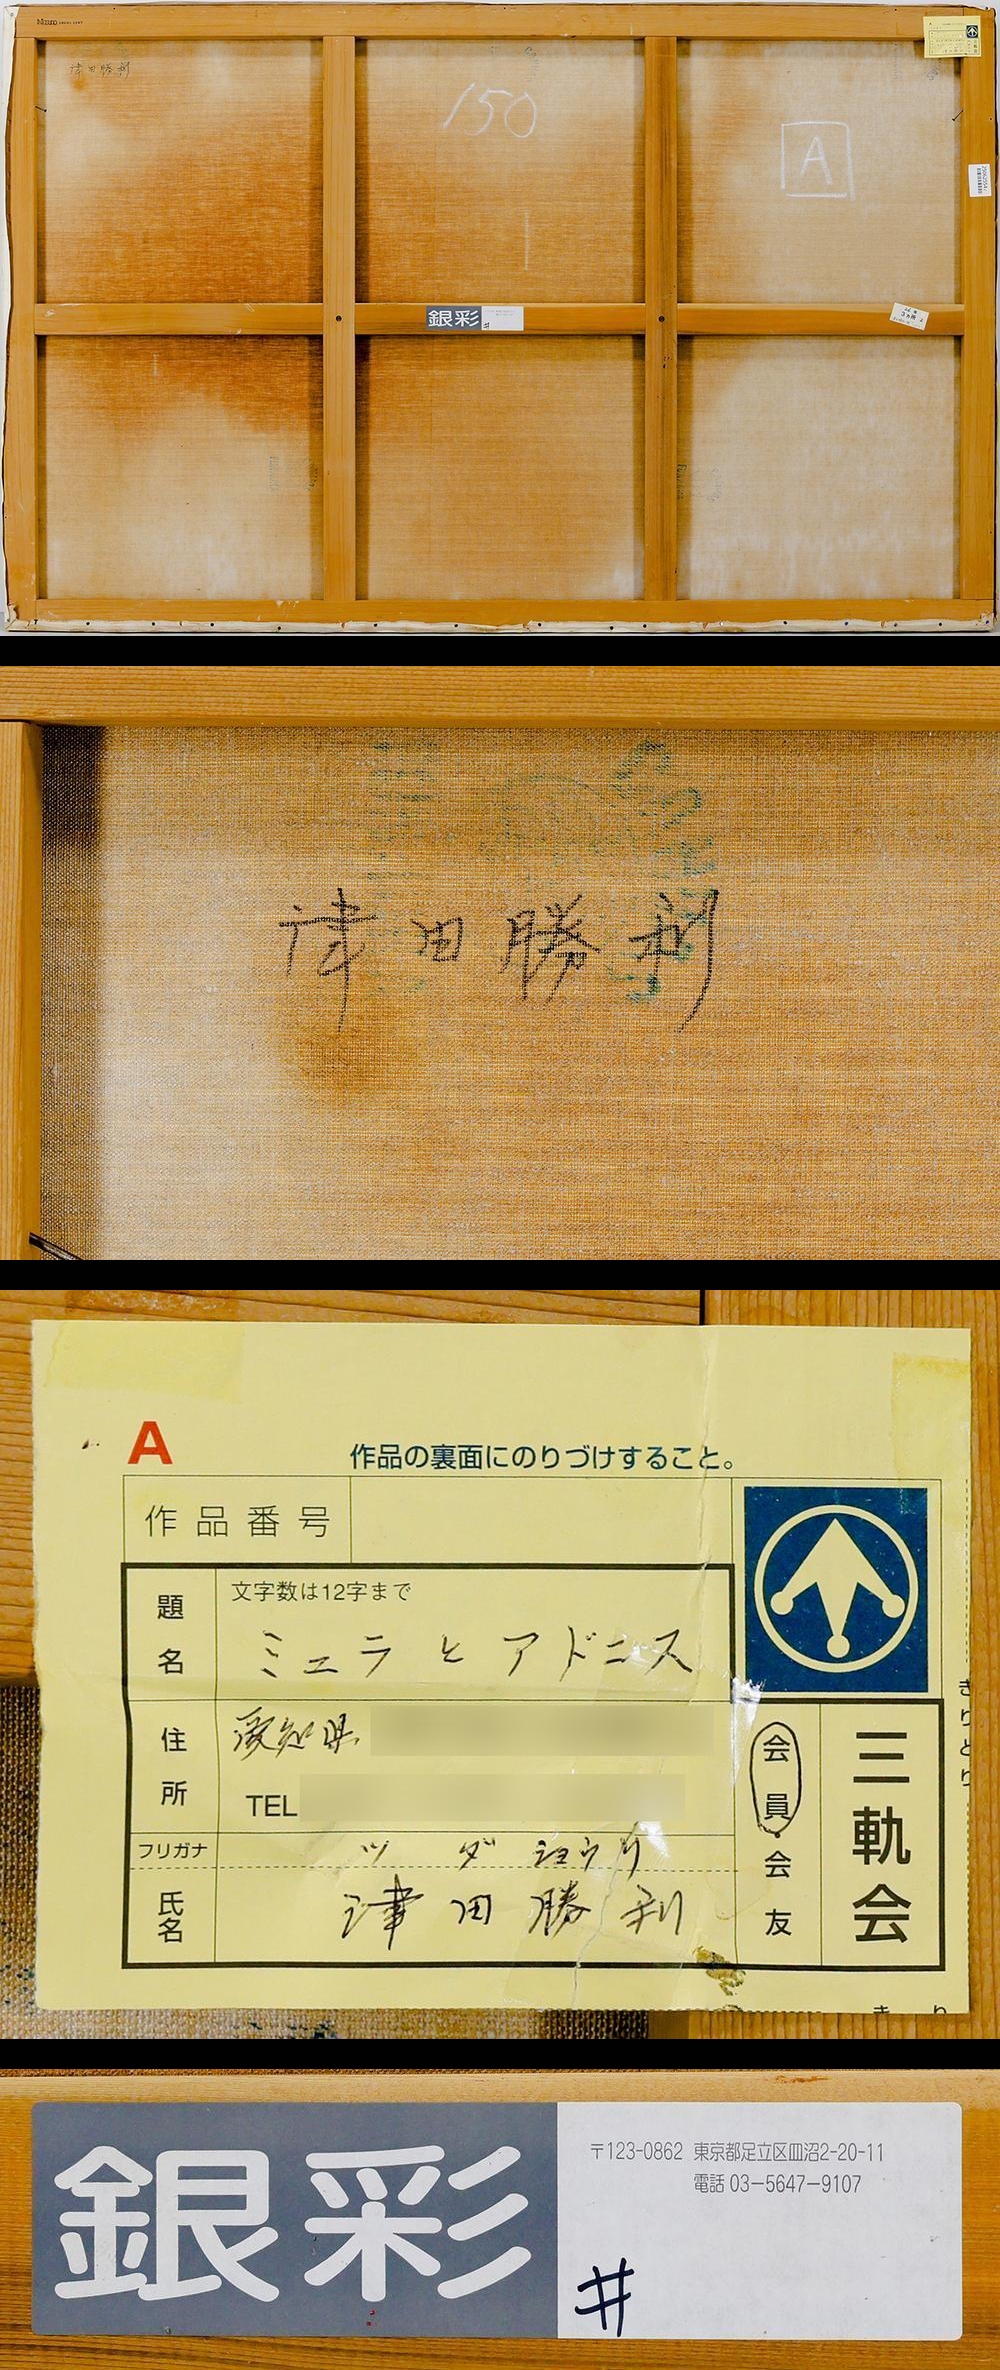 津田勝利
150
A
銀彩
#
津田勝利
A
作品の裏面にのりづけすること。
作品番号
題名
文字数は12字まで
ミュラとアドニス
住所
愛知県
TEL
フリガナ
ツダショウリ
氏名
津田勝利
会員・会友
三軌会
きりとり
きり
銀彩
〒123-0862 東京都足立区皿沼2-20-11
電話 03-5647-9107
#